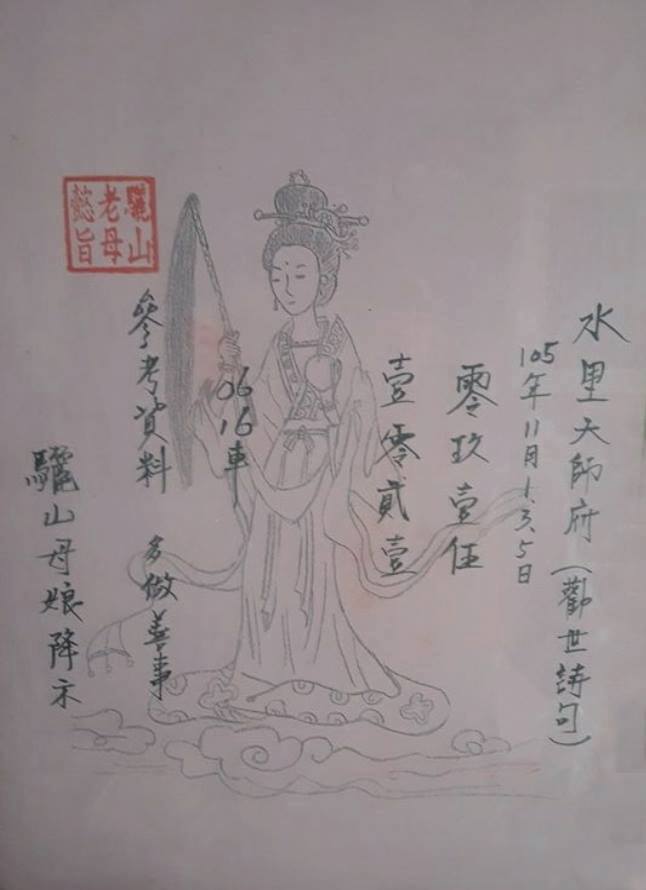 水里大師府(勸世詩句)
105年11月1.3.5日
零玖壹伍
壹零貳壹
06
16車
參考資料 多做善事
驪山母娘降示
驪山
老母
懿旨